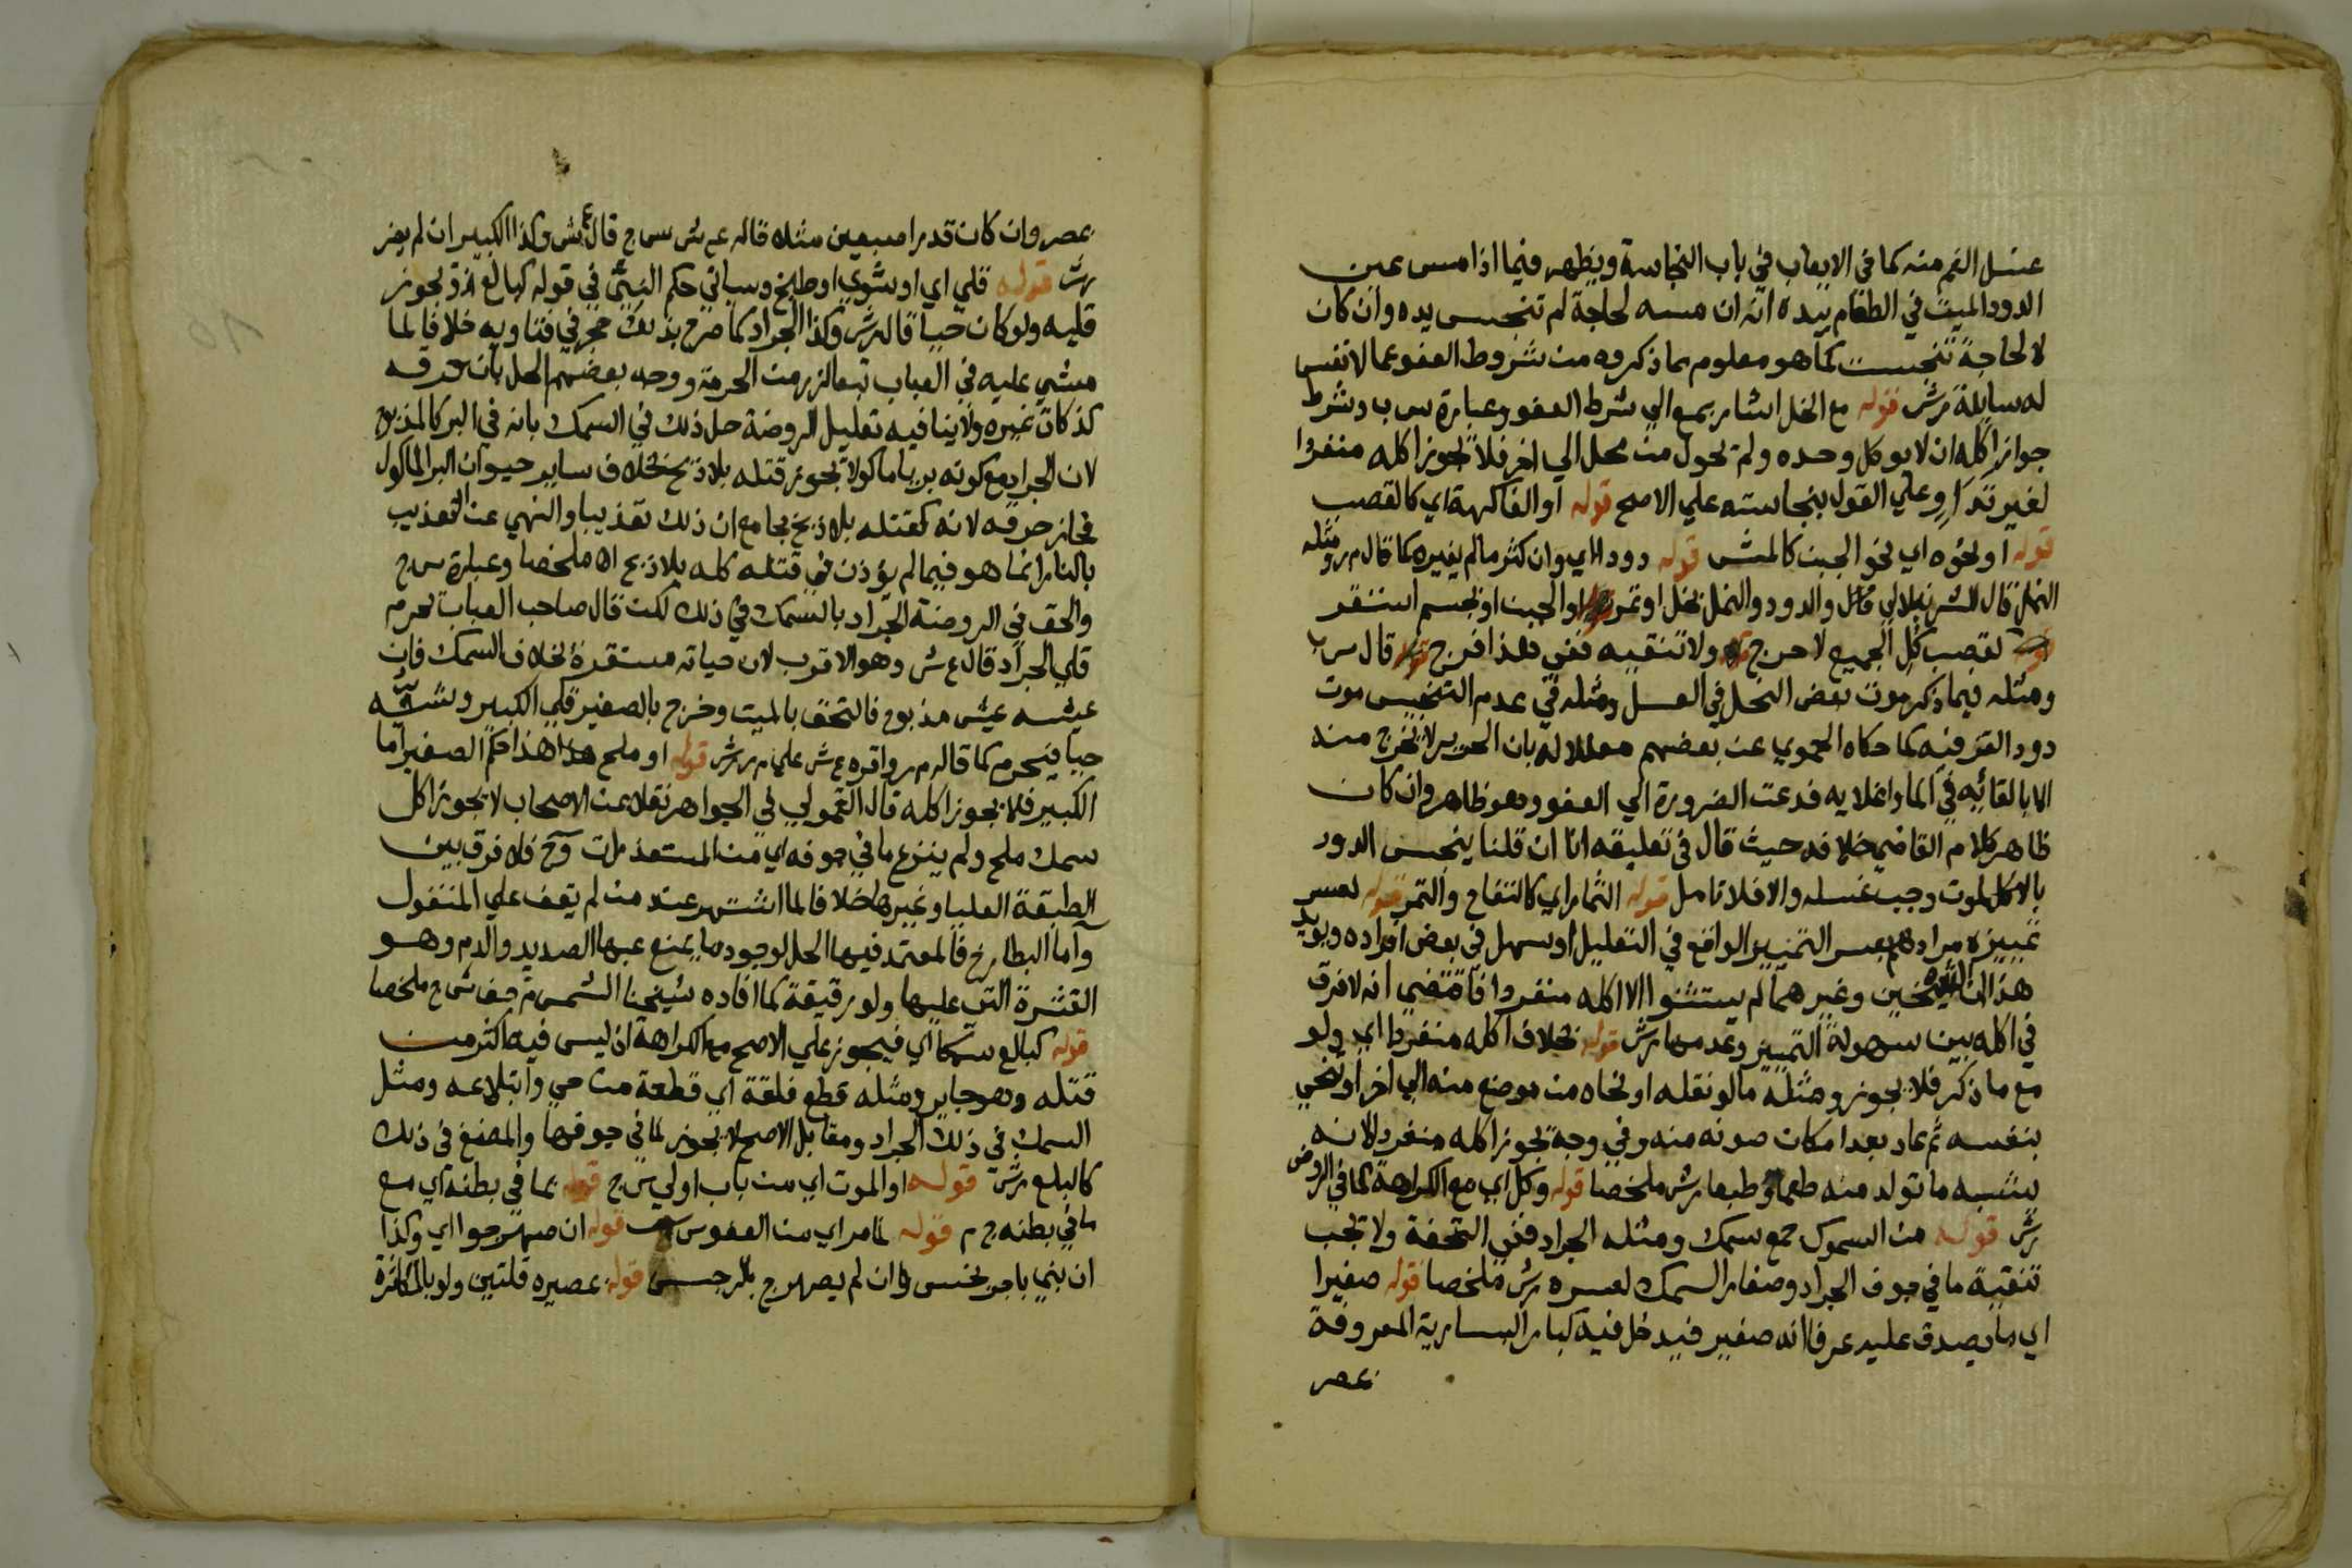 غسل الفم منه كما في الايعاب في باب النجاسة ويظهر فيما اذا مس عين
الدود الميت في الطعام بيده انه ان مسه لحاجة لم تنجس يده وان كان
لا لحاجة تنجست كما هو معلوم مما ذكروه من شروط العفو عما لا نفس
له سايلة رش قوله مع الخل اشار بمع الي شرط العفو وعبارة س ب وشرط
جواز اكله ان لا يوكل وحده ولم يحول من محل الي اخر فلا يجوز اكله منفردا
لغير تداو وعلي القول بنجاسته علي الاصح قوله او الفاكهة اي كالقصب
قوله او نحوه اي نحو الجبن كالمش قوله دود اي وان كثر ما لم يغيره كما قال م ر ومثله
النمل قال الشرنبلالي والدود والنمل بخل او تمر او الجبن او بجسم استقر
لقصب كل الجميع لا حرج ولا تنقيه ففي هذا فرج قال س ب
ومثله فيما ذكر موت بعض النحل في العسل ومثله في عدم التنجيس موت
دود القز فيه كما حكاه الحموي عن بعضهم معللا له بان الحرير لا يخرج منه
الا بالقائه في الما واغلايه فدعت الضرورة الي العفو وهو ظاهر وان كان
ظاهر كلام القاضي خلافه حيث قال في تعليقه انا ان قلنا ينجس الدود
بالاكل لموت وجب غسله والا فلا تامل قوله الثمار اي كالتفاح والتمر قوله لعسر
تمييزه مرادهم بعسر التمييز الواقع في التعليل او سهل في بعض افراده ويويد
هذا ان الشيخين وغيرهما لم يستثنوا الا اكله منفردا فاقتضي انه لا فرق
في اكله بين سهولة التمييز وعدمها رش قوله بخلاف اكله منفردا اي ولو
مع ما ذكر فلا يجوز ومثله ما لو نقله او نحاه من موضع منه الي اخر او تنحي
بنفسه ثم عاد بعد امكان صونه منه وفي وجه يجوز اكله منفردا لانه
يشبه ما تولد منه طعما وطبعا رش ملخصا قوله وكل اي مع الكراهة كما في الروض
رش قوله من السموك جمع سمك ومثله الجراد ففي التحفة ولا تجب
تنقية ما في جوف الجراد وصغار السمك لعسره رش ملخصا قوله صغيرا
اي ما يصدق عليه عرفا انه صغير فيدخل فيه كبار البسارية المعروفة
عصر
عصر وان كان قدر اصبعين مثلا قاله ع ش س ج قال ع ش وكذا الكبير ان لم يضر
رش قوله قلي اي او شوي او طبخ وسياتي حكم النيئ في قوله كبالع اذ يجوز
قليه ولو كان حيا قاله رش وكذا الجراد كما صرح بذلك حجر في فتاويه خلافا لما
مشي عليه في العباب تبعا لزر من الحرمة ووجه بعضهم الحل بان حرقه
كذكاة غيره ولا ينافيه تعليل الروضة حل ذلك في السمك بانه في البر كالمذبوح
لان الجراد مع كونه بريا ماكولا يجوز قتله بلا ذبح بخلاف ساير حيوان البر الماكول
فجاز حرقه لانه كقتله بلا ذبح بجامع ان ذلك تعذيبا والنهي عن التعذيب
بالنار انما هو فيما لم يؤذن في قتله كله بلا ذبح اه ملخصا وعبارة س ج
والحق في الروضة الجراد بالسمك في ذلك لكن قال صاحب العباب يحرم
قلي الجراد قال ع ش وهو الاقرب لان حياته مستقرة بخلاف السمك فان
عيشه عيش مذبوح فالتحق بالميت وخرج بالصغير قلي الكبير وشيه
حيا فيحرم كما قاله م ر واقره ع ش علي م ر رش قوله او ملح هذا حكم الصغير اما
الكبير فلا يجوز اكله قال القمولي في الجواهر نقلا عن الاصحاب لا يجوز اكل
سمك ملح ولم ينزع ما في جوفه اي من المستقذرات وح فلا فرق بين
الطبقة العليا وغيرها خلافا لما اشتهر عند من لم يقف علي المنقول
واما البطارخ فالمعتمد فيها الحل لوجود ما يمنع عنها الصديد والدم وهو
القشرة التي عليها ولو رقيقة كما افاده شيخنا الشمس م ر ملخصا
قوله كبالع سمكا اي فيجوز علي الاصح مع الكراهة ان ليس فيه اكثر من
قتله وهو جايز ومثله قطع فلقة اي قطعة من حي وابتلاعه ومثل
السمك في ذلك الجراد ومقابل الاصح لا يجوز لما في جوفها والمضغ في ذلك
كالبلع رش قوله او الموت اي من باب اولي س ج قوله بما في بطنه اي مع
ما في بطنه ج م قوله لما مر اي من العفو س ب قوله ان صهرجوا اي وكذا
ان بني باجر نجس وان لم يصهرج قوله عصيره قلتين ولو بالمكاثرة